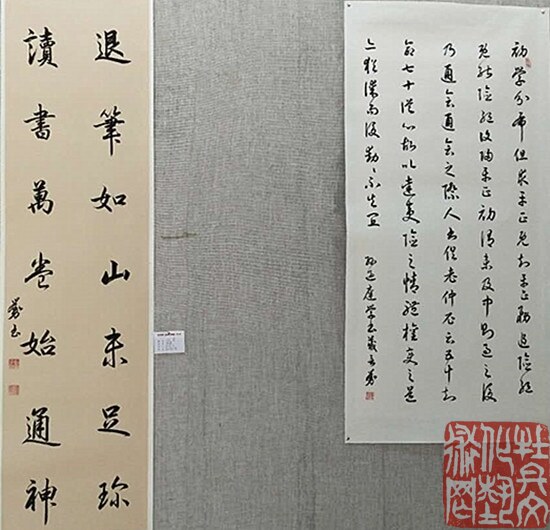 退筆如山未足珍
讀書萬卷始通神
初学分布但求平正既知平正務追險絕
既能險絕復歸平正初謂未及中則過之後
乃通會通會之際人書俱老仲尼云五十知
命七十從心故以達夷險之情體權變之道
亦猶謀而後動不失宜 孫過庭